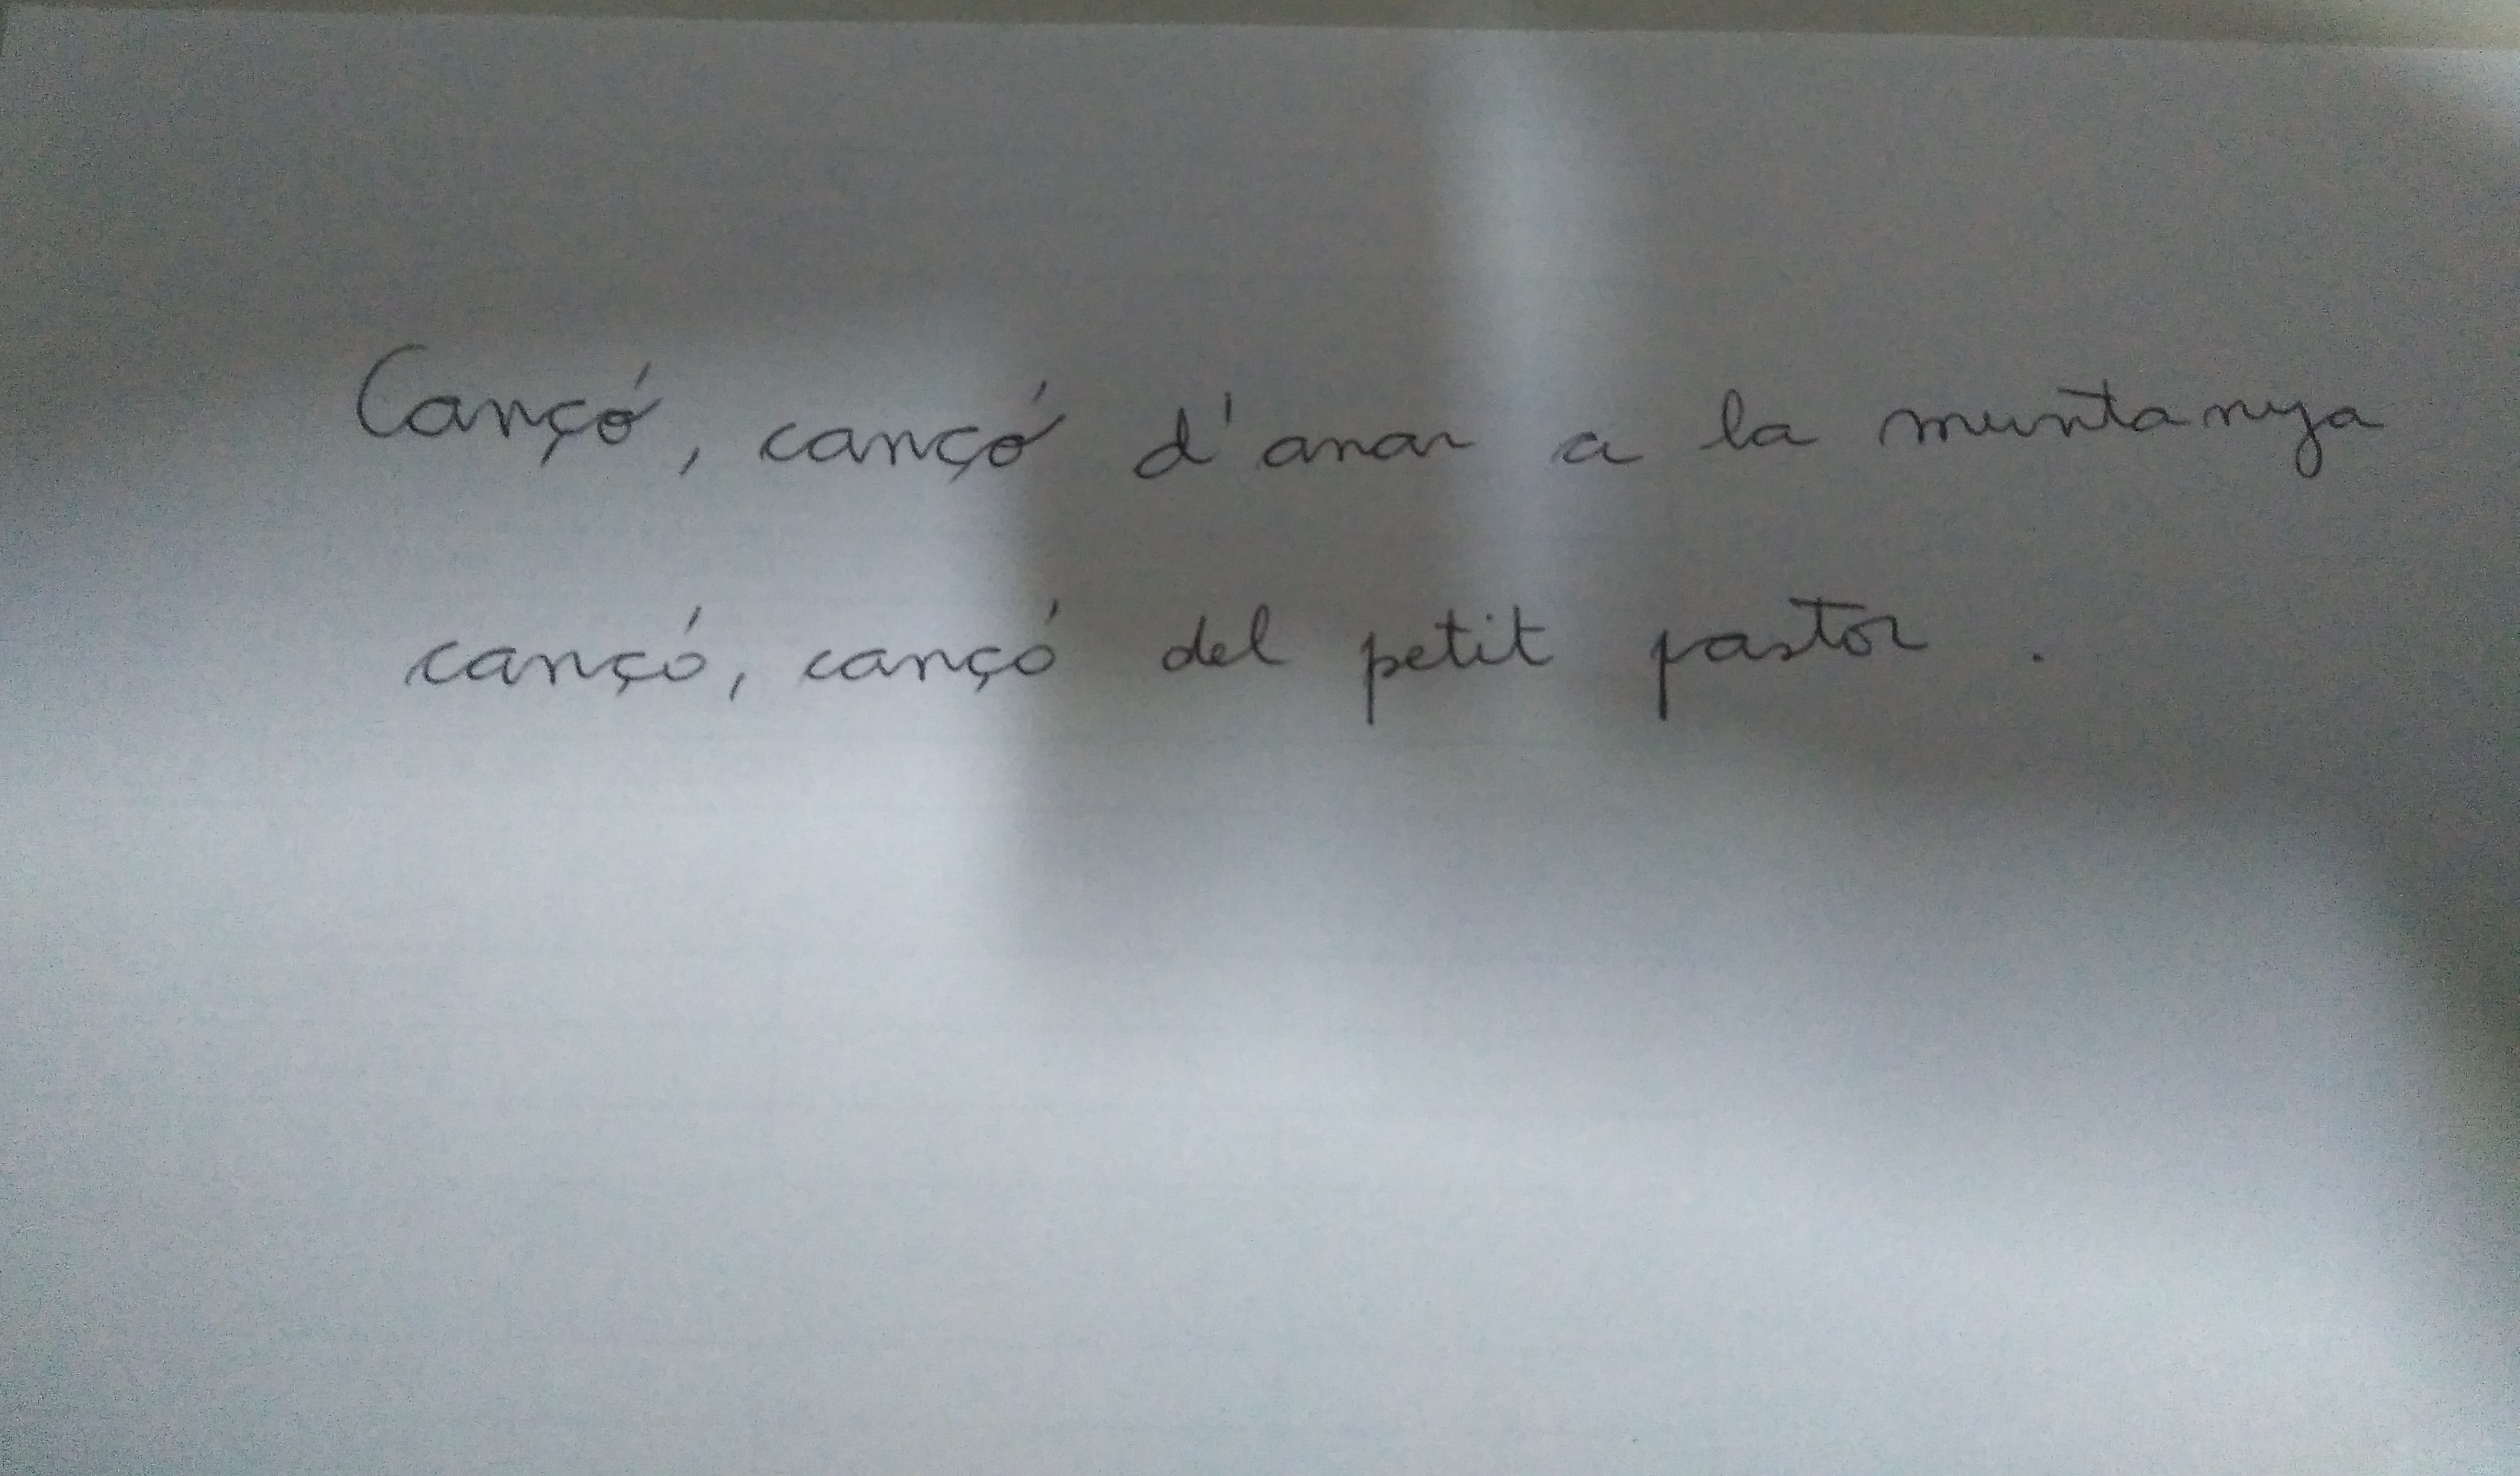 Cançó, cançó d'anar a la muntanya
cançó, cançó del petit pastor.